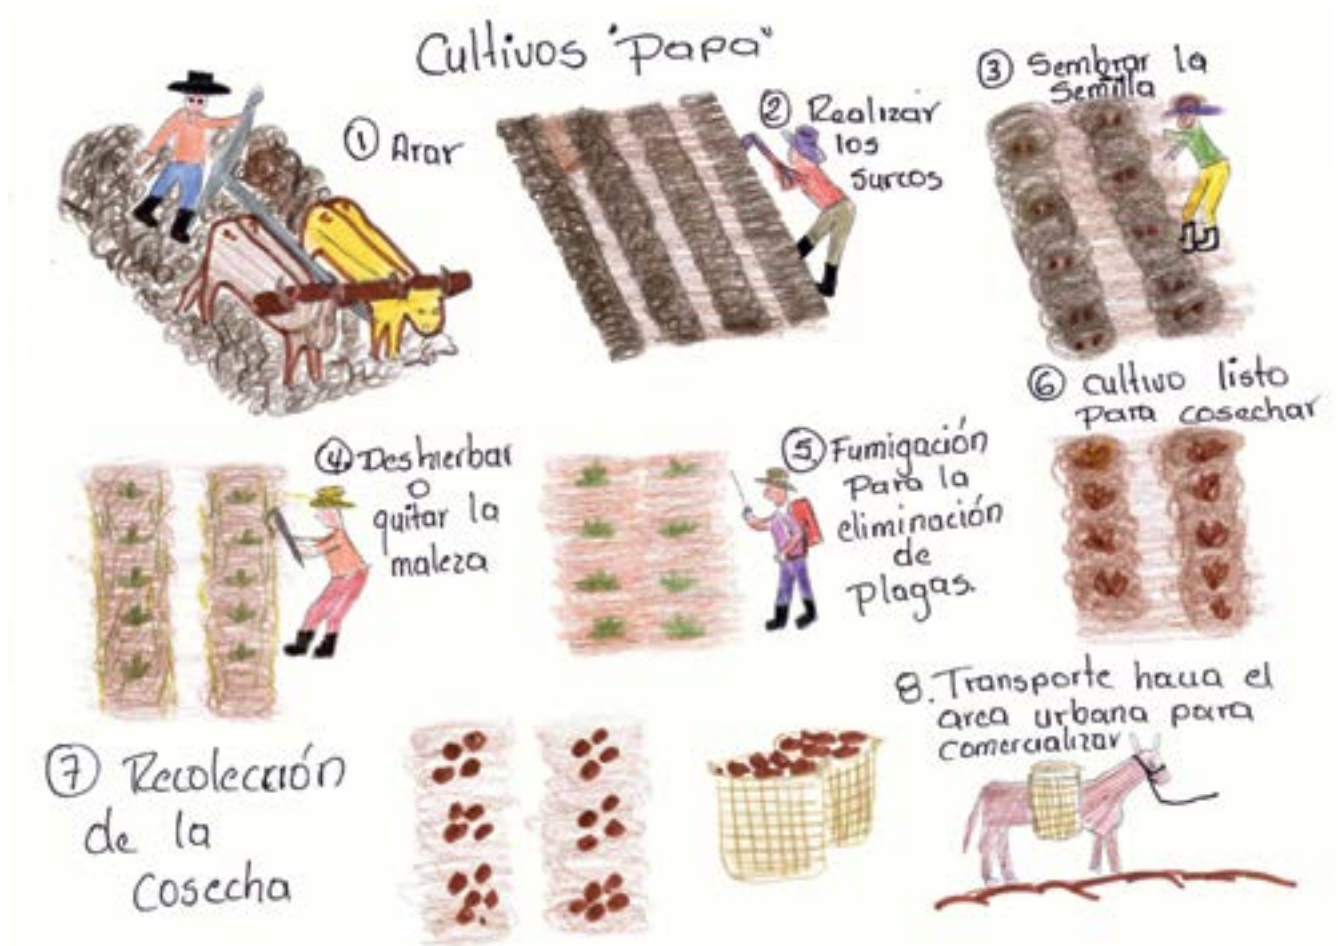 Cultivos "Papa"
① Arar
② Realizar
los
surcos
③ Sembrar la
Semilla
④. Deshierbar
o
quitar la
maleza
⑤ Fumigación
Para la
eliminación
de
Plagas.
⑥ cultivo listo
para cosechar
⑦ Recolección
de la
Cosecha
8. Transporte hacia el
area urbana para
comercializar